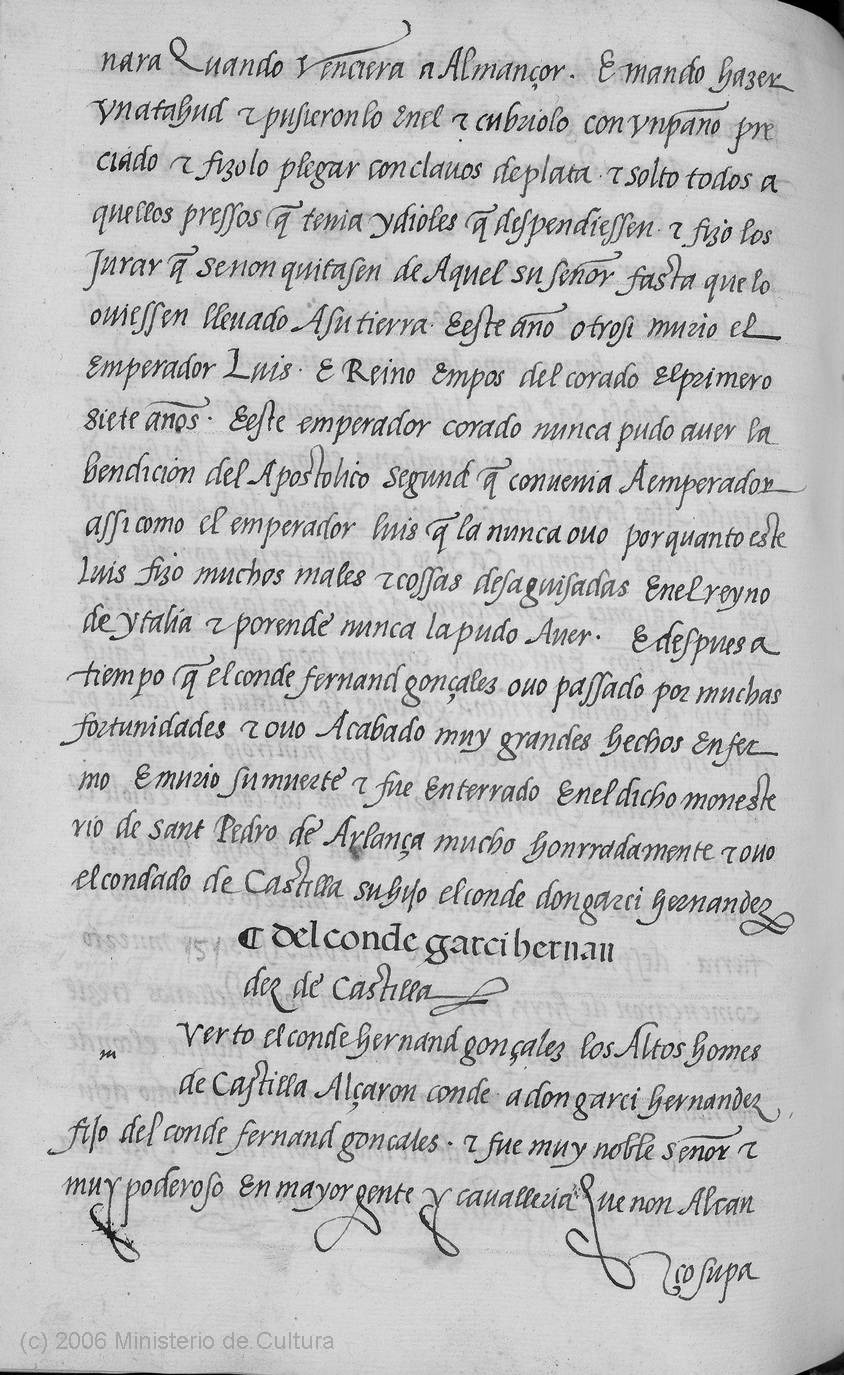 nara Quando Venciera a Almançor. E mando hazer
Vnatahud τ pusieronlo Enel τ cubriolo con Vnpaño pre
ciado τ fizolo plegar con clauos de plata · τ solto todos a
quellos pressos q̄ tenia y dioles q̄ despendiessen · τ fizo los
Jurar q̄ se non quitasen de Aquel su señor fasta que lo
ouiessen lleuado Asu tierra · Eeste año otrosi murio el
Emperador Luis · E Reino Empos del corado El primero
Siete años · Eeste emperador corado nunca pudo auer la
bendicion del Apostolico Segund q̄ conuenia Aemperador
assi como el emperador luis q̄ la nunca ouo por quanto este
Luis fizo muchos males τ cossas desaguisadas Enel reyno
de ytalia τ porende nunca la pudo Auer · E despues a
tiempo q̄ el conde fernand gonçalez ouo passado por muchas
fortunidades τ ouo Acabado muy grandes hechos Enfer
mo E murio su muerte τ fue Enterrado Enel dicho moneste
rio de Sant Pedro de Arlança mucho honrradamente τ ouo
el condado de Castilla su hijo el conde don garci hernandez
¶ del conde garci hernan
151
dez de Castilla
m
Verto el conde hernand gonçalez los Altos homes
de Castilla Alçaron conde a don garci hernandez
fijo del conde fernand goncales · τ fue muy noble señor τ
muy poderoso En mayor gente y caualleria Que non Alcan
ço su pa
(c) 2006 Ministerio de Cultura